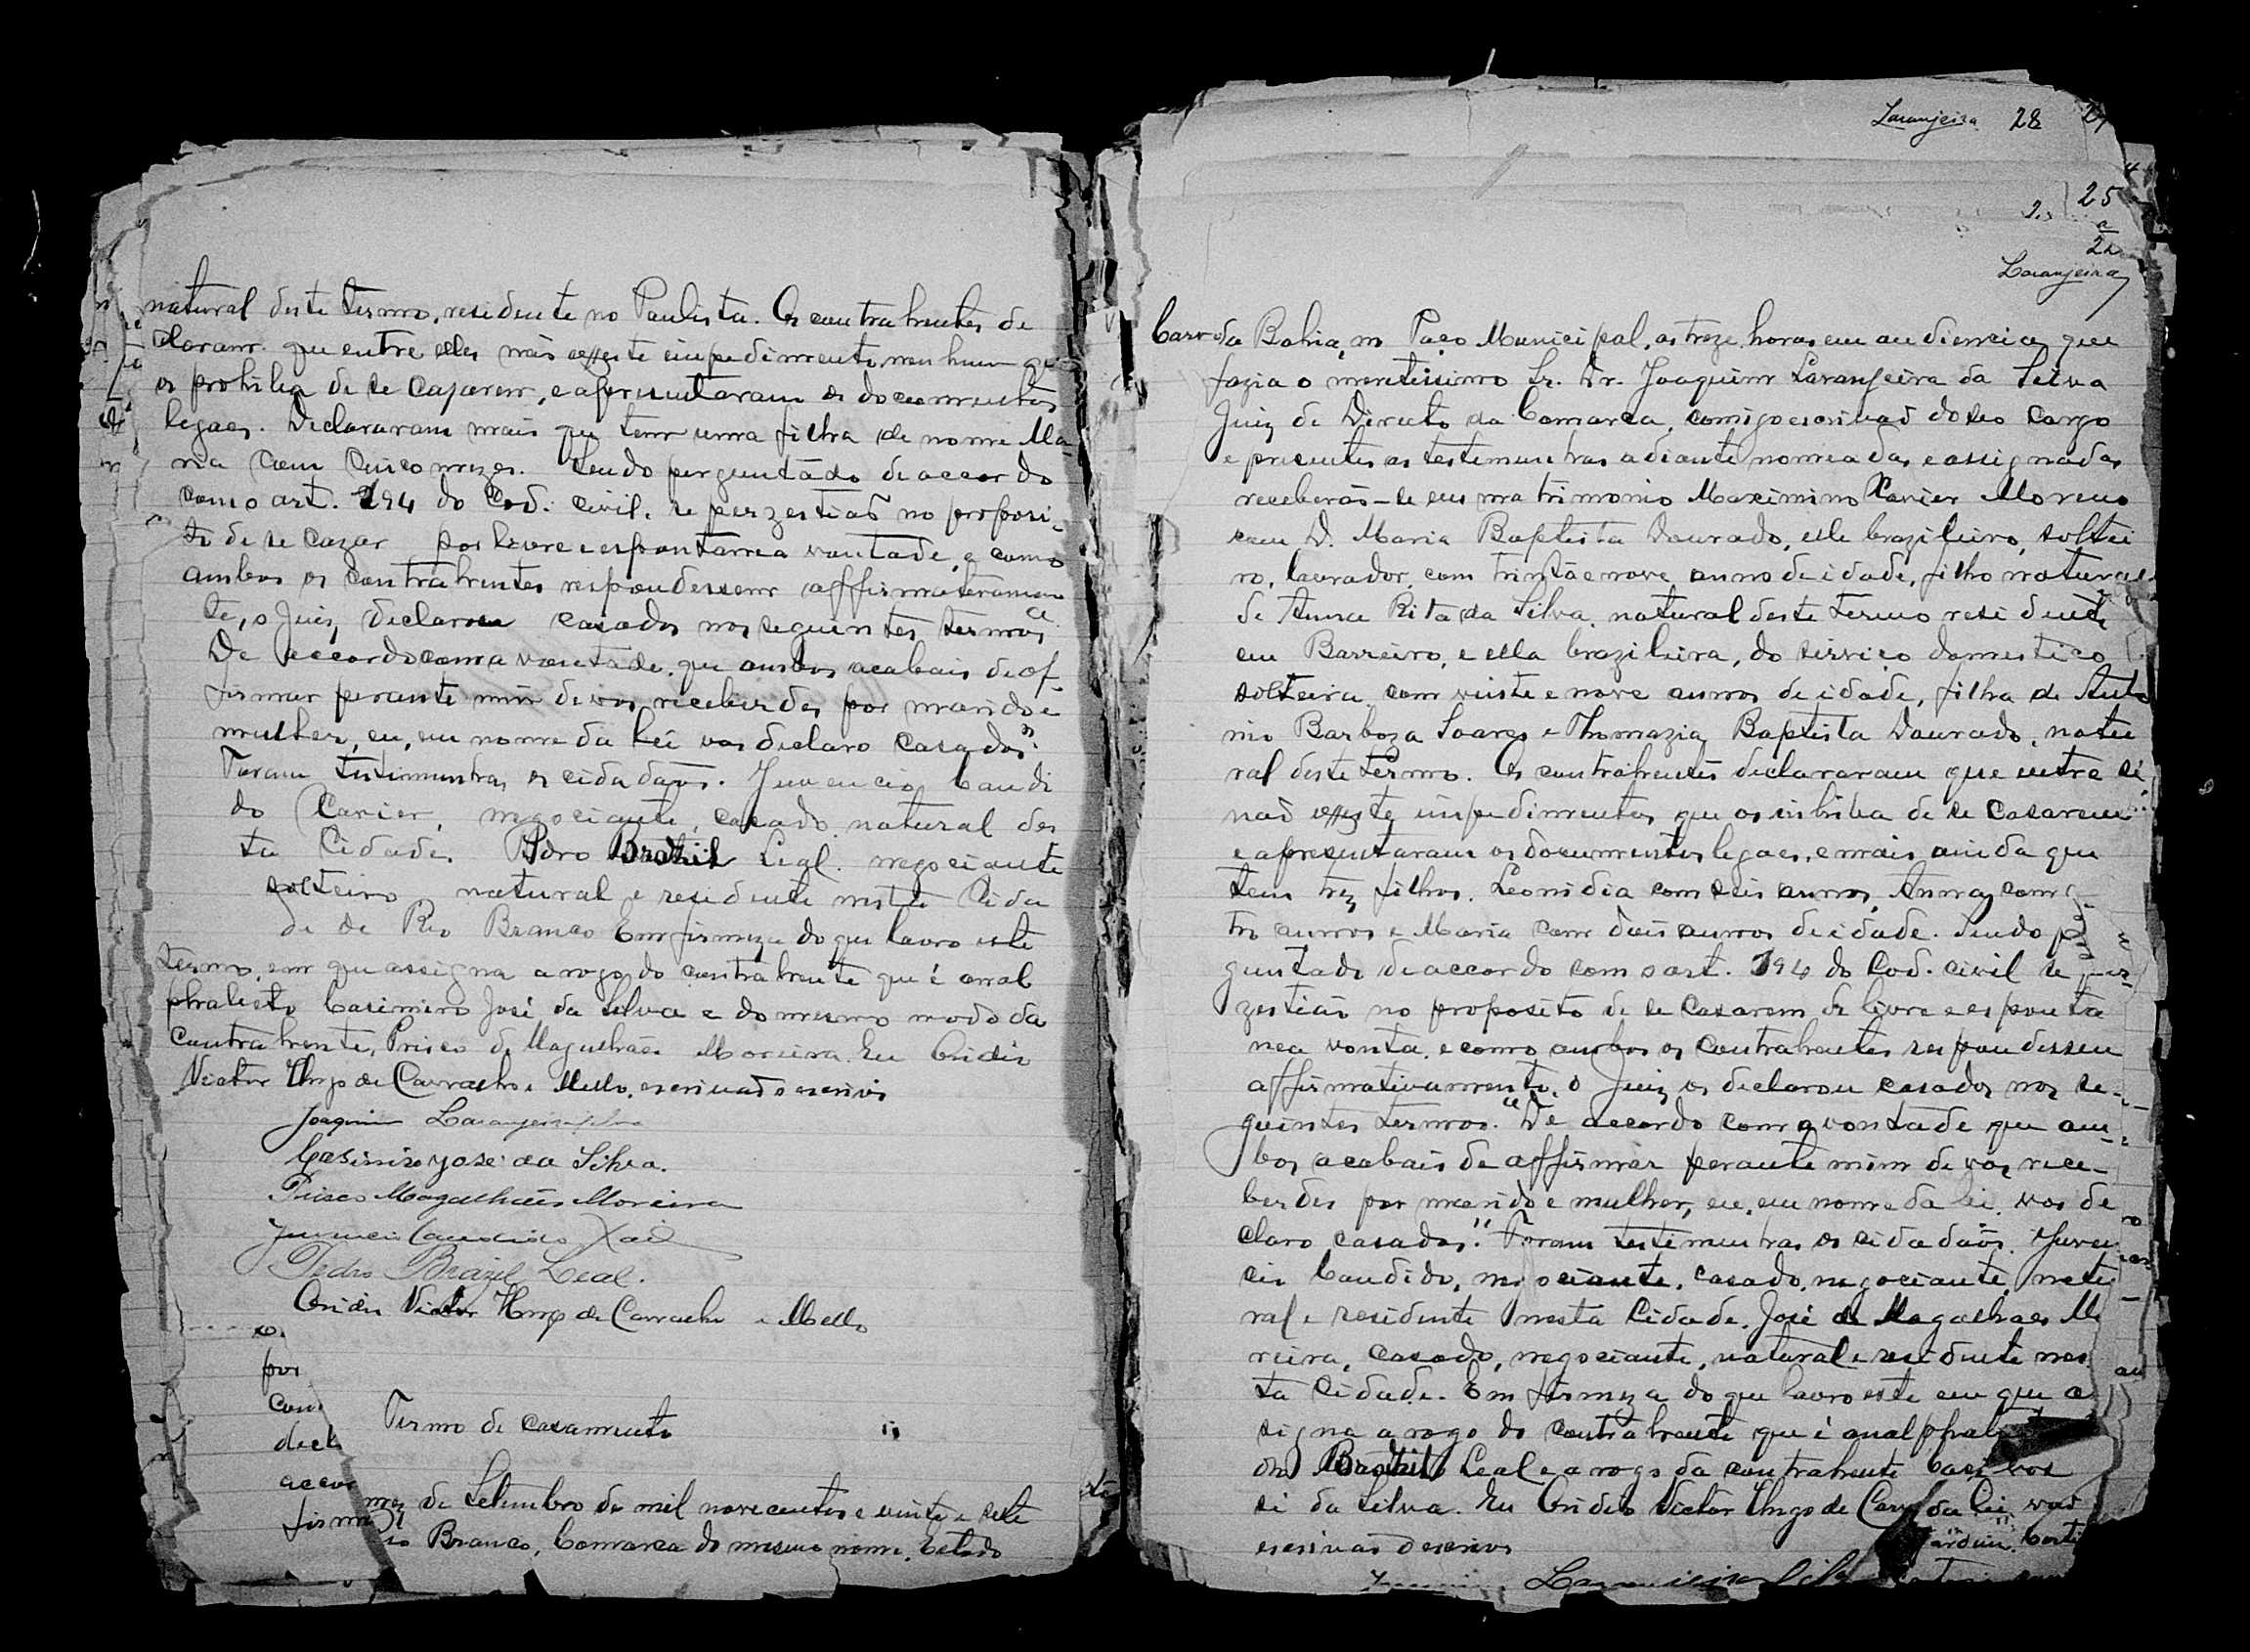 natural deste termo, residente no Paulista. Os contrahentes de
clararam que entre elles não exeste impedimento nenhum que
os prohiba de se casarem, e apresentaram os documentos
legaes. Declararam mais que tem uma filha de nome Ma
ria com cinco mezes. Sendo perguntado de accordo
com o art. 194 do Cod. civil, se perzestiaõ no proposi-
to de se cazar por livre e espontanea vontade, e como
ambos os contrahentes respondessem affirmativamen
te, o Juiz declarou casados nos seguintes termos "
De accordo com a vontade que ambos acabais de af-
firmar perante mim de vos receberdes por marido e
mulher, eu, em nome da Lei vos declaro casados".
Foram testimunhas os cidadaõs. Juvencio Candi
do Xavier, negociante, casado, natural des
ta Cidade. Pedro Brazil Leal. negociante
solteiro natural e residente nesta Cida
de de Rio Branco Em firmeza do que lavro este
termo, em que assigna a rogo do contrahente que é anal
phabeto Casimiro José da Silva e do mesmo modo da
contrahente, Prisco de Magalhães Moreira. Eu Ovidio
Victor Hugo de Carvalho e Mello, escrivaõ o escrivi
Joaquim Laranjeira Silva
Casimiro José da Silva.
Prisco Magalhães Moreira
Juvencio Candido Xavier
Pedro Brazil Leal.
Ovidio Victor Hugo de Carvalho e Mello
por
com
decl
accor
firma
Termo de casamento
mez de Setembro de mil novecentos e vinte e sete
io Branco, Comarca do mesmo nome, Estado
Laranjeira 28
25
a
Laranjeira
da Bahia, no Paço Municipal, as treze horas em audiencia que
fazia o meritissimo Sr. Dr. Joaquim Laranjeira da Silva
Juiz de Direito da Comarca, comigo escrivaõ do seo cargo
e presentes as testemunhas adiante nomeadas e assignadas
receberaõ-se em matrimonio Maximino Xavier Moreno
com D. Maria Baptista Dourado, elle brazileiro, soltei
ro, lavrador, com trinta e nove anno de idade, filho natural
de Anna Rita da Silva, natural deste termo residente
em Barreiro, e ella brazileira, do serviço domestico
solteira com vinte e nove annos de idade, filha de Anto
nio Barboza Soares e Thomazia Baptista Dourado, natu
ral deste termo. Os contrahentes declararam que entre si
naõ exeste impedimentos que os inhiba de se casarem
e apresentaram os documentos legaes, e mais ainda que
tem trez filhos. Leonidia com seis annos, Anna com
tro annos e Maria com dois annos de idade. Sendo p
guntado de accordo com o art. 194 do Cod. civil se per-
zestiaõ no proposito de se casarem de livre e esponta
nea vonta, e como ambos os contrahentes respondessem
affirmativamente, o Juiz os declarou casados nos se-
guintes termos. "De accordo com a vontade que am-
bos acabais de affirmar perante mim de vos rece-
berdes por marido e mulher, eu, em nome da lei, vos de
claro casados". Foram testimunhas os cidadaõs. Juven
cio Candido, negociante, casado, negociante, natu
ral e residente nesta Cidade. José de Magalhaes M
reira, casado, negociante, natural e residente nes
ta Cidade. Em firmeza do que lavro este em que a
signa a rogo do contrahente que é analphab
Brazil Leal e a rogo da contrahente
si da Silva. Eu Ovidio Victor Hugo de Carv da Lei vos
escrivaõ o escrivi
Laranjeira Silva